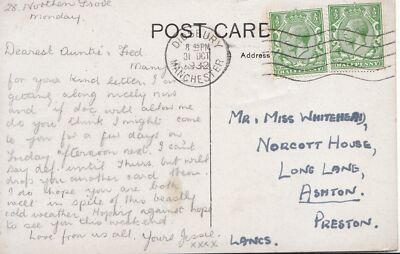 28, Northen Grove
Monday.
Dearest Auntie & Fred.
Many
for your kind letter. I am
getting along nicely now
and if doc will allow me
do you think I might come
to you for a few days on
Friday afternoon next. I can't
say def. until Thurs. but will
drop you another card then.
I do hope you are both
well in spite of this beastly
cold weather. Hoping against hope
to see you this weekend.
Love from us all. Yours Jessie.
xxxx
POST CARD
Address
DIDSBURY
8 PM
31 OCT
1932
MANCHESTER
HALFPENNY
HALFPENNY
MR, MISS WHITEHEAD,
NORCOTT HOUSE,
LONG LANE,
ASHTON.
PRESTON.
LANCS.